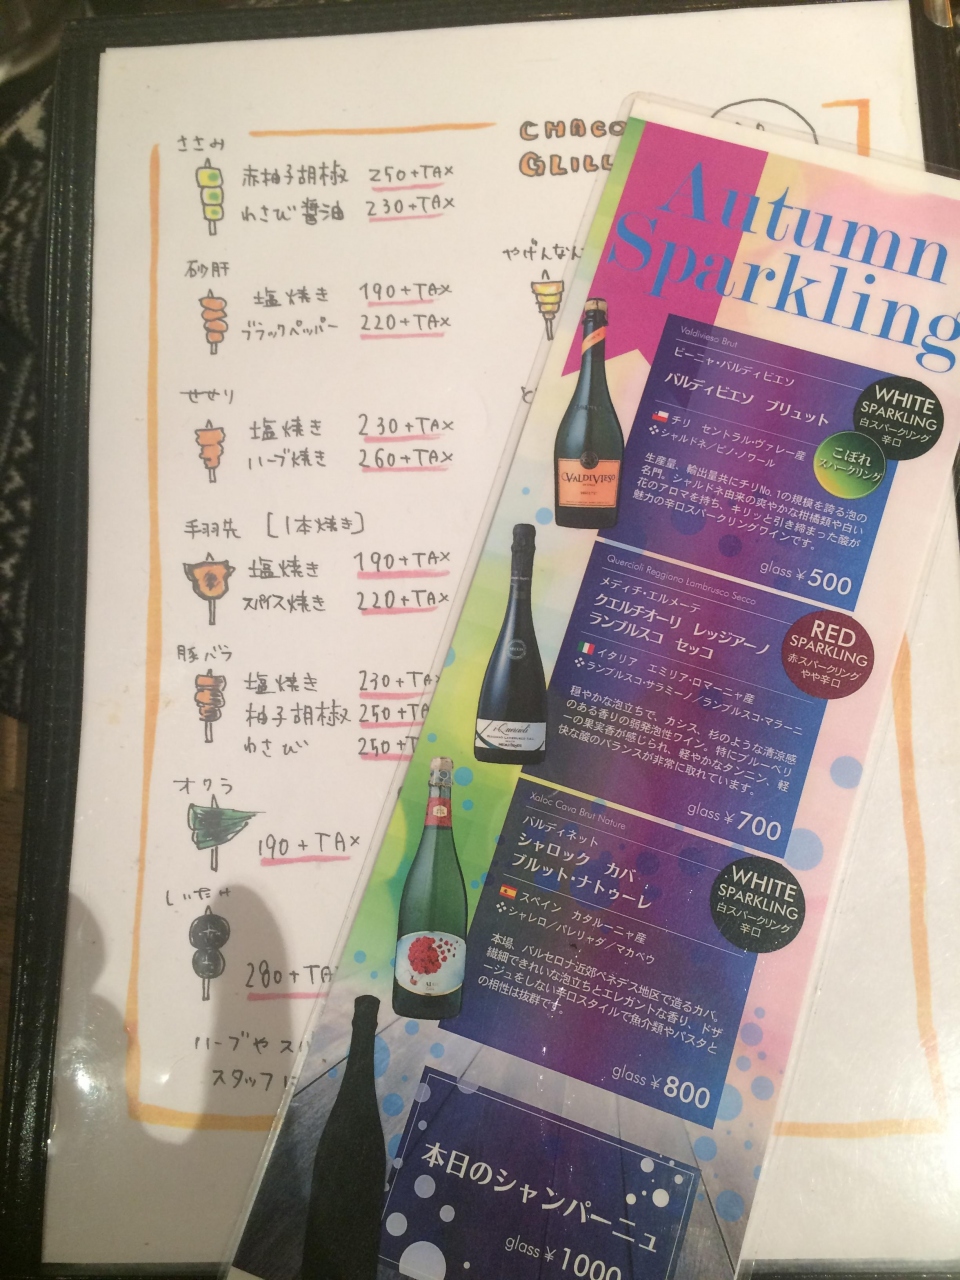 ささみ
赤柚子胡椒 250+TAX
わさび醤油 230+TAX
砂肝
塩焼き 190+TAX
ブラックペッパー 220+TAX
せせり
塩焼き 230+TAX
ハーブ焼き 260+TAX
手羽先 [1本焼き]
塩焼き 190+TAX
スパイス焼き 220+TAX
豚バラ
塩焼き 230+TA
柚子胡椒 250+TA
わさび 250+T
オクラ
190+TAX
しいたけ
280+TA
ハーブや
スタッフ
CHACO
GLILL
やげんなん
Autumn
Sparkling
Valdivieso Brut
ビーニャ・バルディビエソ
バルディビエソ ブリュット
WHITE
SPARKLING
白スパークリング
辛口
こぼれ
スパークリング
チリ セントラル・ヴァレー産
シャルドネ/ピノ・ノワール
生産量、輸出量共にチリNo.1の規模を誇る泡の
名門。シャルドネ由来の爽やかな柑橘類や白い
花のアロマを持ち、キリッと引き締まった酸が
魅力の辛口スパークリングワインです。
glass ¥500
VALDIVIESO
Quercioli Reggiano Lambrusco Secco
メディチ・エルメーテ
クエルチオーリ レッジアーノ
ランブルスコ セッコ
RED
SPARKLING
赤スパークリング
やや辛口
イタリア エミリア・ロマーニャ産
ランブルスコ・サラミーノ/ランブルスコ・マラーニ
穏やかな泡立ちで、カシス、杉のような清涼感
のある香りの弱発泡性ワイン。特にブルーベリ
ーの果実香が感じられ、軽やかなタンニン、軽
快な酸のバランスが非常に取れています。
glass ¥700
Xaloc Cava Brut Nature
バルディネット
シャロック カバ
ブルット・ナトゥーレ
WHITE
SPARKLING
白スパークリング
辛口
スペイン カタルーニャ産
シャレロ/パレリャダ/マカベウ
本場、バルセロナ近郊ペネデス地区で造るカバ。
繊細できれいな泡立ちとエレガントな香り、ドザ
ージュをしない辛口スタイルで魚介類やパスタと
の相性は抜群です。
glass ¥800
本日のシャンパーニュ
glass ¥1000